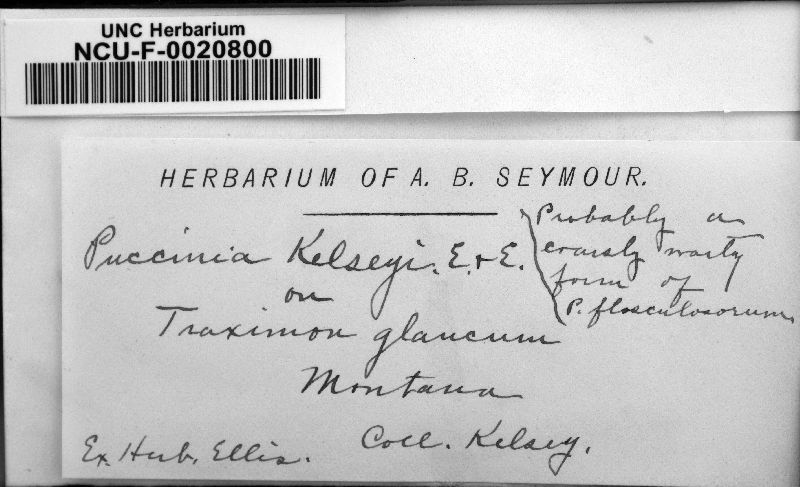 UNC Herbarium
NCU-F-0020800
HERBARIUM OF A. B. SEYMOUR.
Puccinia Kelseyi. E. & E.
on
Troximon glaucum
Montana
Ex. Herb. Ellis. Coll. Kelsey.
Probably a
coarsly warty
form of
P. flosculosorum.